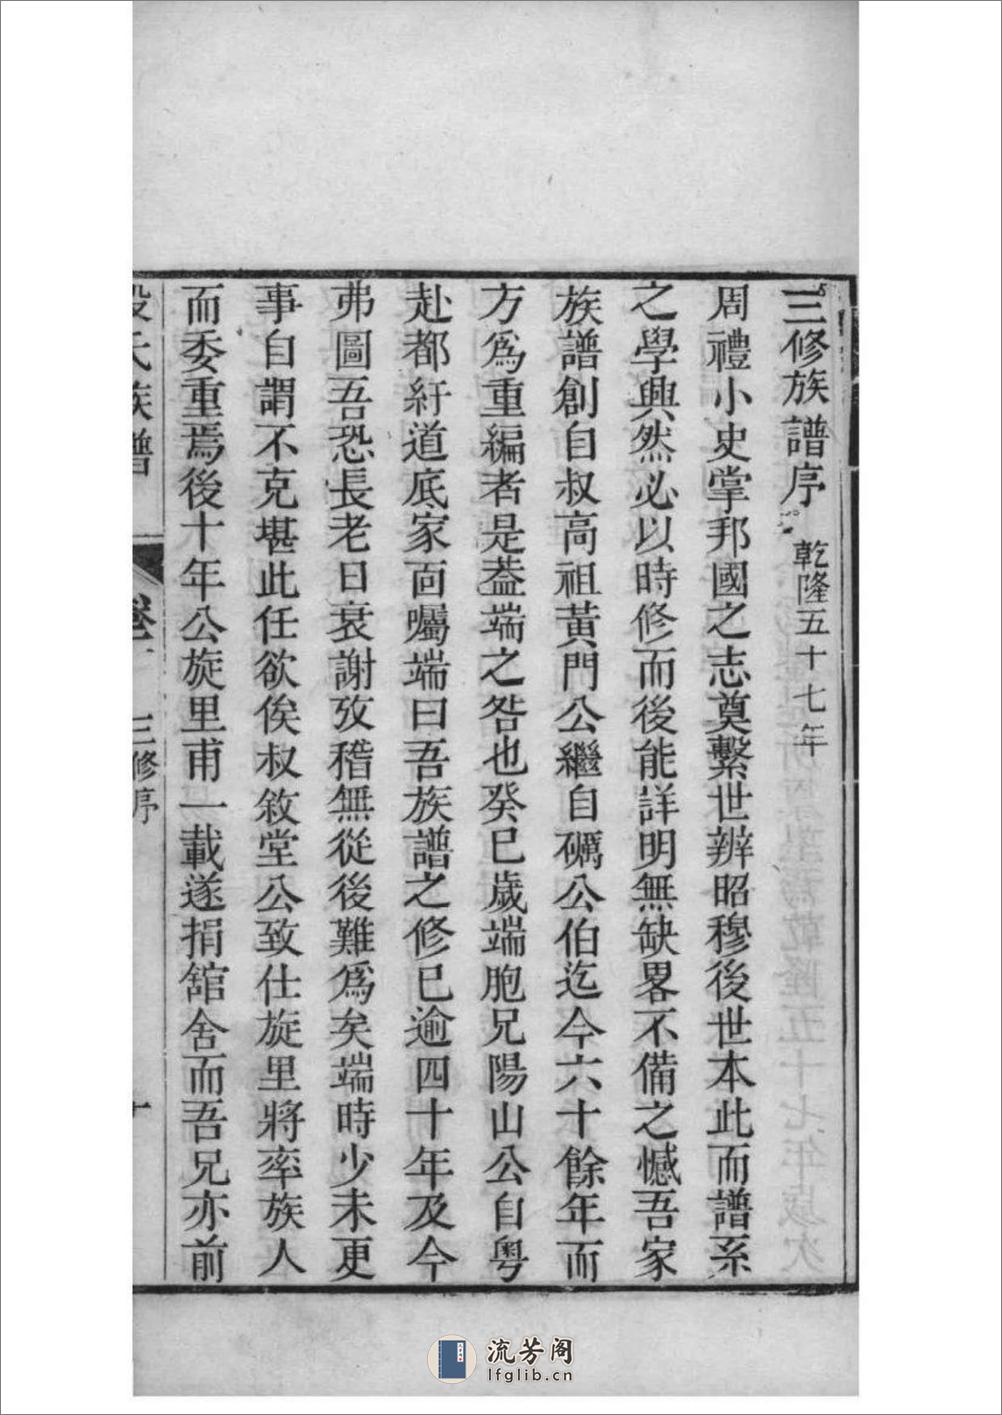 三修族譜序 乾隆五十七年
周禮小史掌邦國之志奠繫世辨昭穆後世本此而譜系
之學興然必以時修而後能詳明無缺畧不備之憾吾家
族譜創自叔高祖黃門公繼自礪公伯迄今六十餘年而
方爲重編者是葢端之咎也癸巳歲端胞兄陽山公自粵
赴都紆道底家面囑端曰吾族譜之修已逾四十年及今
弗圖吾恐長老日衰謝攷稽無從後難爲矣端時少未更
事自謂不克堪此任欲俟叔敘堂公致仕旋里將率族人
而委重焉後十年公旋里甫一載遂捐舘舍而吾兄亦前
氏族譜 卷 三修序
流芳阁
lfglib.cn